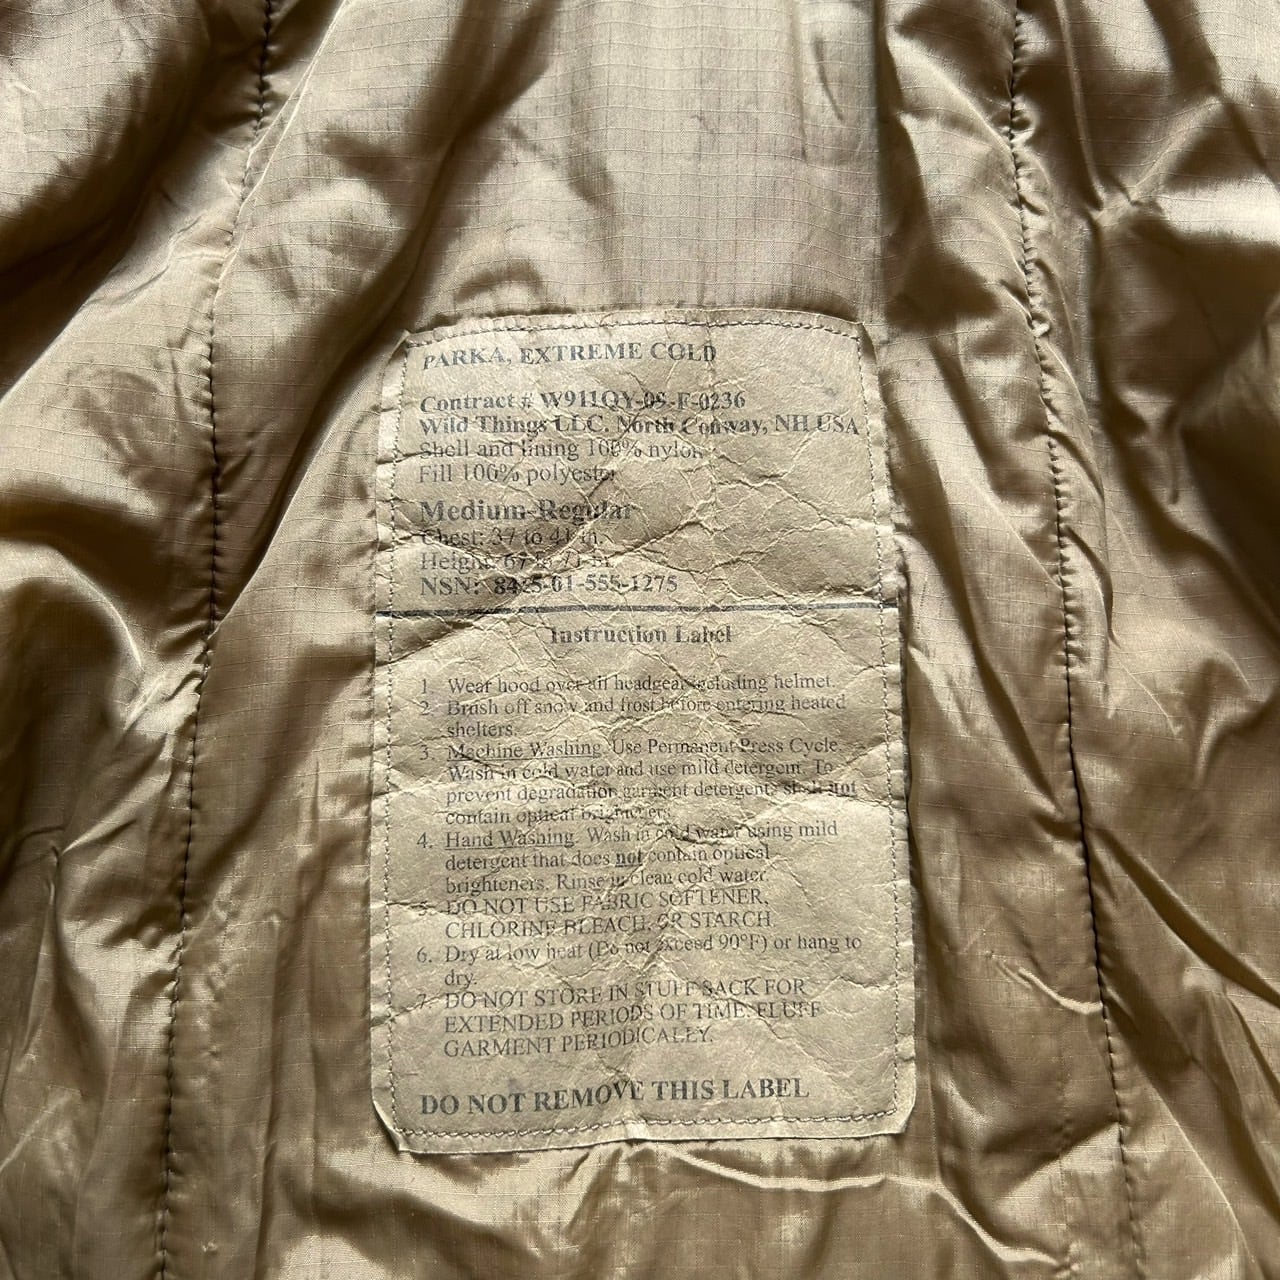 PARKA, EXTREME COLD
Contract # W911QY-09-F-0236
Wild Things LLC. North Conway, NH USA
Shell and lining 100% nylon
Fill 100% polyester
Medium-Regular
Chest: 37 to 41 in.
Height: 67 to 71 in.
NSN: 8415-01-555-1275
Instruction Label
1. Wear hood over all headgear including helmet.
2. Brush off snow and frost before entering heated
shelters.
3. Machine Washing. Use Permanent Press Cycle.
Wash in cold water and use mild detergent. To
prevent degradation garment detergents shall not
contain optical brighteners.
4. Hand Washing. Wash in cold water using mild
detergent that does not contain optical
brighteners. Rinse in clean cold water.
5. DO NOT USE FABRIC SOFTENER,
CHLORINE BLEACH, OR STARCH.
6. Dry at low heat (Do not exceed 90°F) or hang to
dry.
7. DO NOT STORE IN STUFF SACK FOR
EXTENDED PERIODS OF TIME. FLUFF
GARMENT PERIODICALLY.
DO NOT REMOVE THIS LABEL